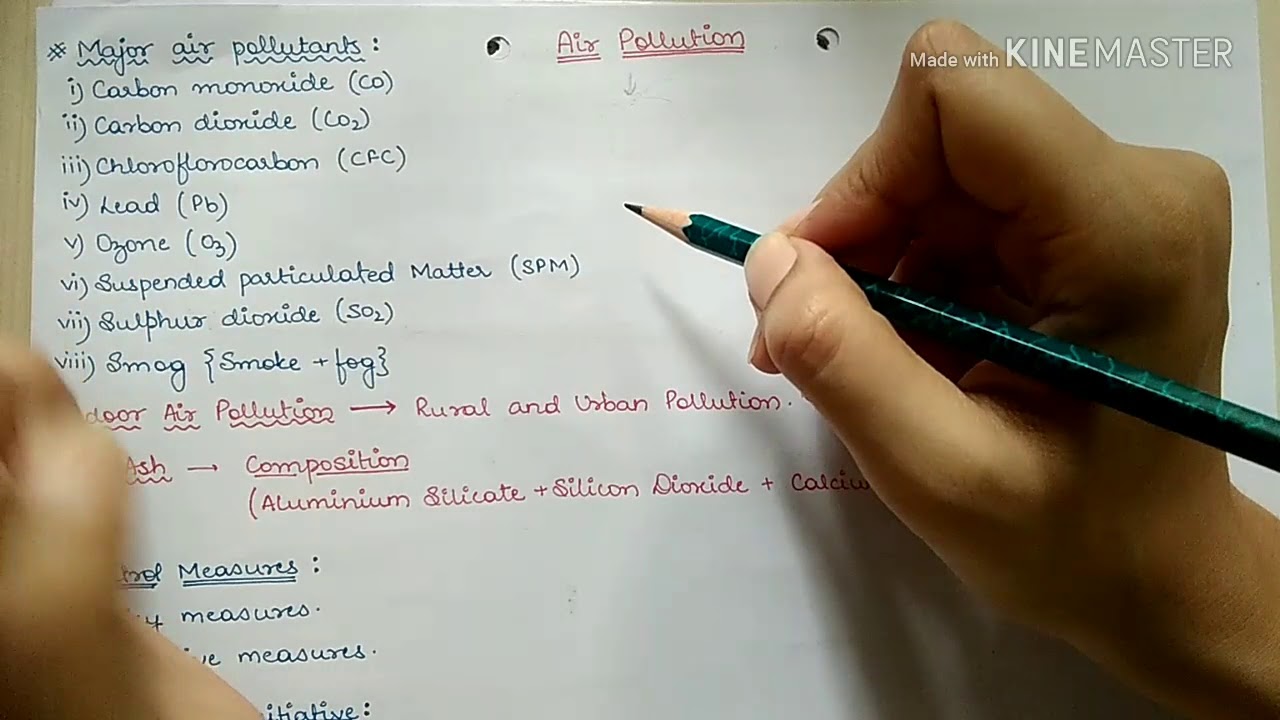 Air Pollution
Made with KINEMASTER
* Major air pollutants:
i) Carbon monoxide (CO)
ii) Carbon dioxide (CO2)
iii) Chloroflorocarbon (CFC)
iv) Lead (Pb)
v) Ozone (O3)
vi) Suspended particulated Matter (SPM)
vii) Sulphur dioxide (SO2)
viii) Smog {Smoke + fog}
door Air Pollution → Rural and Urban Pollution.
Ash → Composition
(Aluminium Silicate + Silicon Dioxide + Calciu
Measures:
measures.
measures.
itiative: